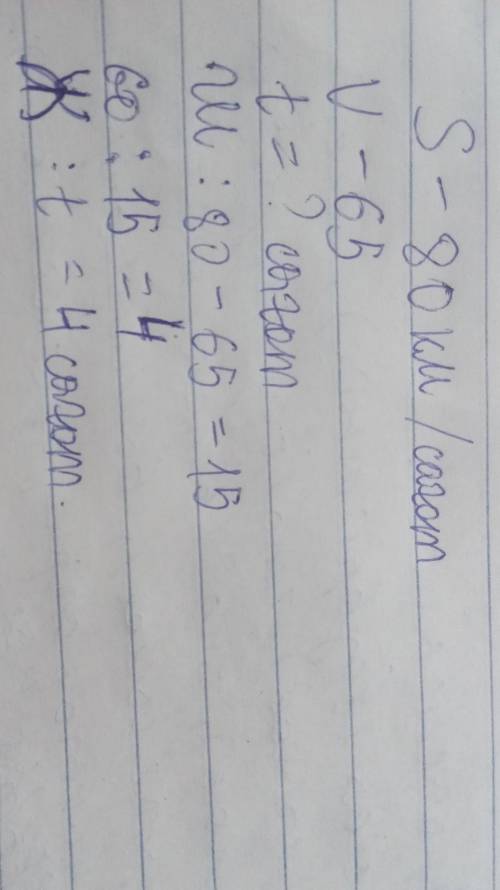 S - 80 км / соғот
V - 65
t = ? соғот
Ш : 80 - 65 = 15
60 : 15 = 4
Ж : t = 4 соғот.